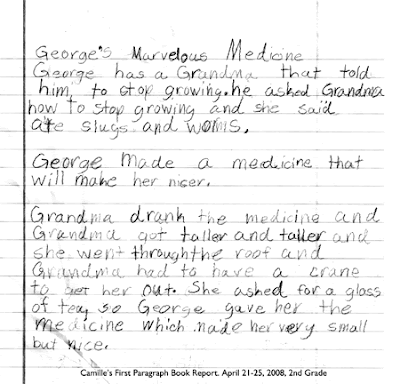 George's Marvelous Medicine
George has a Grandma that told
him to stop growing. he asked Grandma
how to stop growing and she said
ate slugs and worms.
George Made a medicine that
will make her niser.
Grandma drank the medicine and
Grandma got taller and taller and
she went throughthe roof and
Grandma had to have a crane
to get her out. She asked for a glass
of tea, so George gave her the
medicine which made her very small
but nice.
Camille's First Paragraph Book Report. April 21-25, 2008, 2nd Grade